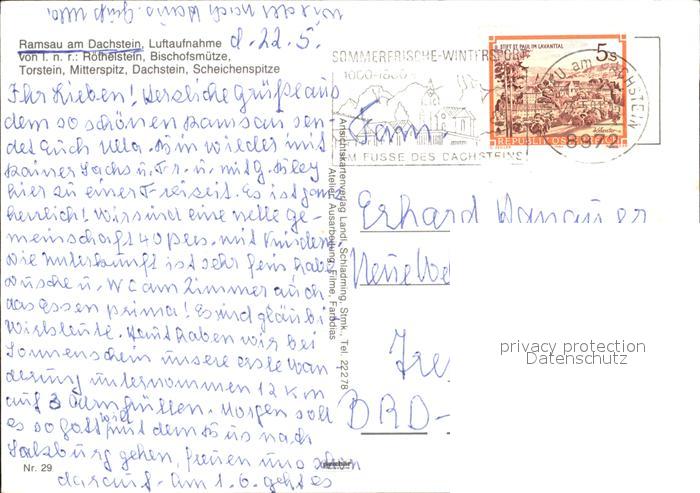 wieder nach Haus. Gruß
Eure Ulla
Ramsau am Dachstein, Luftaufnahme
d. 22.5.
von l. n. r.: Röthelstein, Bischofsmütze,
Torstein, Mitterspitz, Dachstein, Scheichenspitze
Ihr Lieben! Herzliche Grüße aus
dem so schönen Ramsau sen-
det Euch Ulla. Bin wieder mit
Rainer Sachs u. Fr. u. mit G.
hier zu einer Freizeit. Es ist ganz
herrlich! Wir sind eine nette Ge-
meinschaft 40 Pers. mit Kindern
die Unterkunft ist sehr fein, habe
Dusche u. WC am Zimmer auch
das Essen prima! Es sind gläubige
Wirtsleute. Heut haben wir bei
Sonnenschein unsere erste Wan-
derung unternommen 12 km
auf 3 Almhütten. Morgen soll
es so Gott will mit dem Bus nach
Salzburg gehen, freuen uns schon
darauf. Am 1.6. geht es
Nr. 29
Ansichtskartenverlag Landl, Schladming, Stmk., Tel. 22278
Atelier, Ausarbeitung, Filme, Farbdias
SOMMERFRISCHE-WINTERSPORT
AM FUSSE DES DACHSTEINS
STIFT ST. PAUL IM LAVANTTAL
5S
REPUBLIK ÖSTERREICH
RAMSAU am DACHSTEIN
8972
Fam.
Erhard
Neue
BRD-
privacy protection
Datenschutz